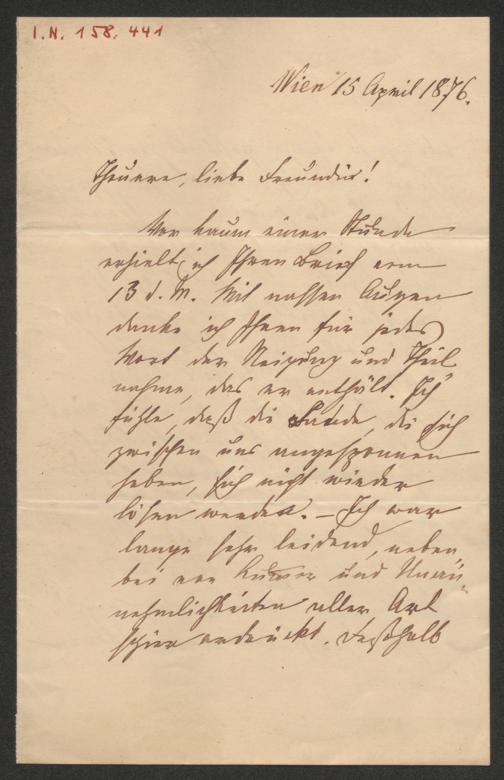 I.N. 158.441
Wien 15 April 1876.
Theuere, liebe Freundin!
Vor kaum einer Stunde
erhielt ich Ihren Brief vom
13 d. M. Mit nassen Augen
danke ich Ihnen für jedes
Wort der Neigung und Theil
nahme, das er enthält. Ich
fühle, daß die Bande, die sich
zwischen uns angesponnen
haben, sich nicht wieder
lösen werden. – Ich war
lange sehr leidend, neben
bei von Kummer und Unan
nehmlichkeiten aller Art
schier erdrückt. Deßhalb